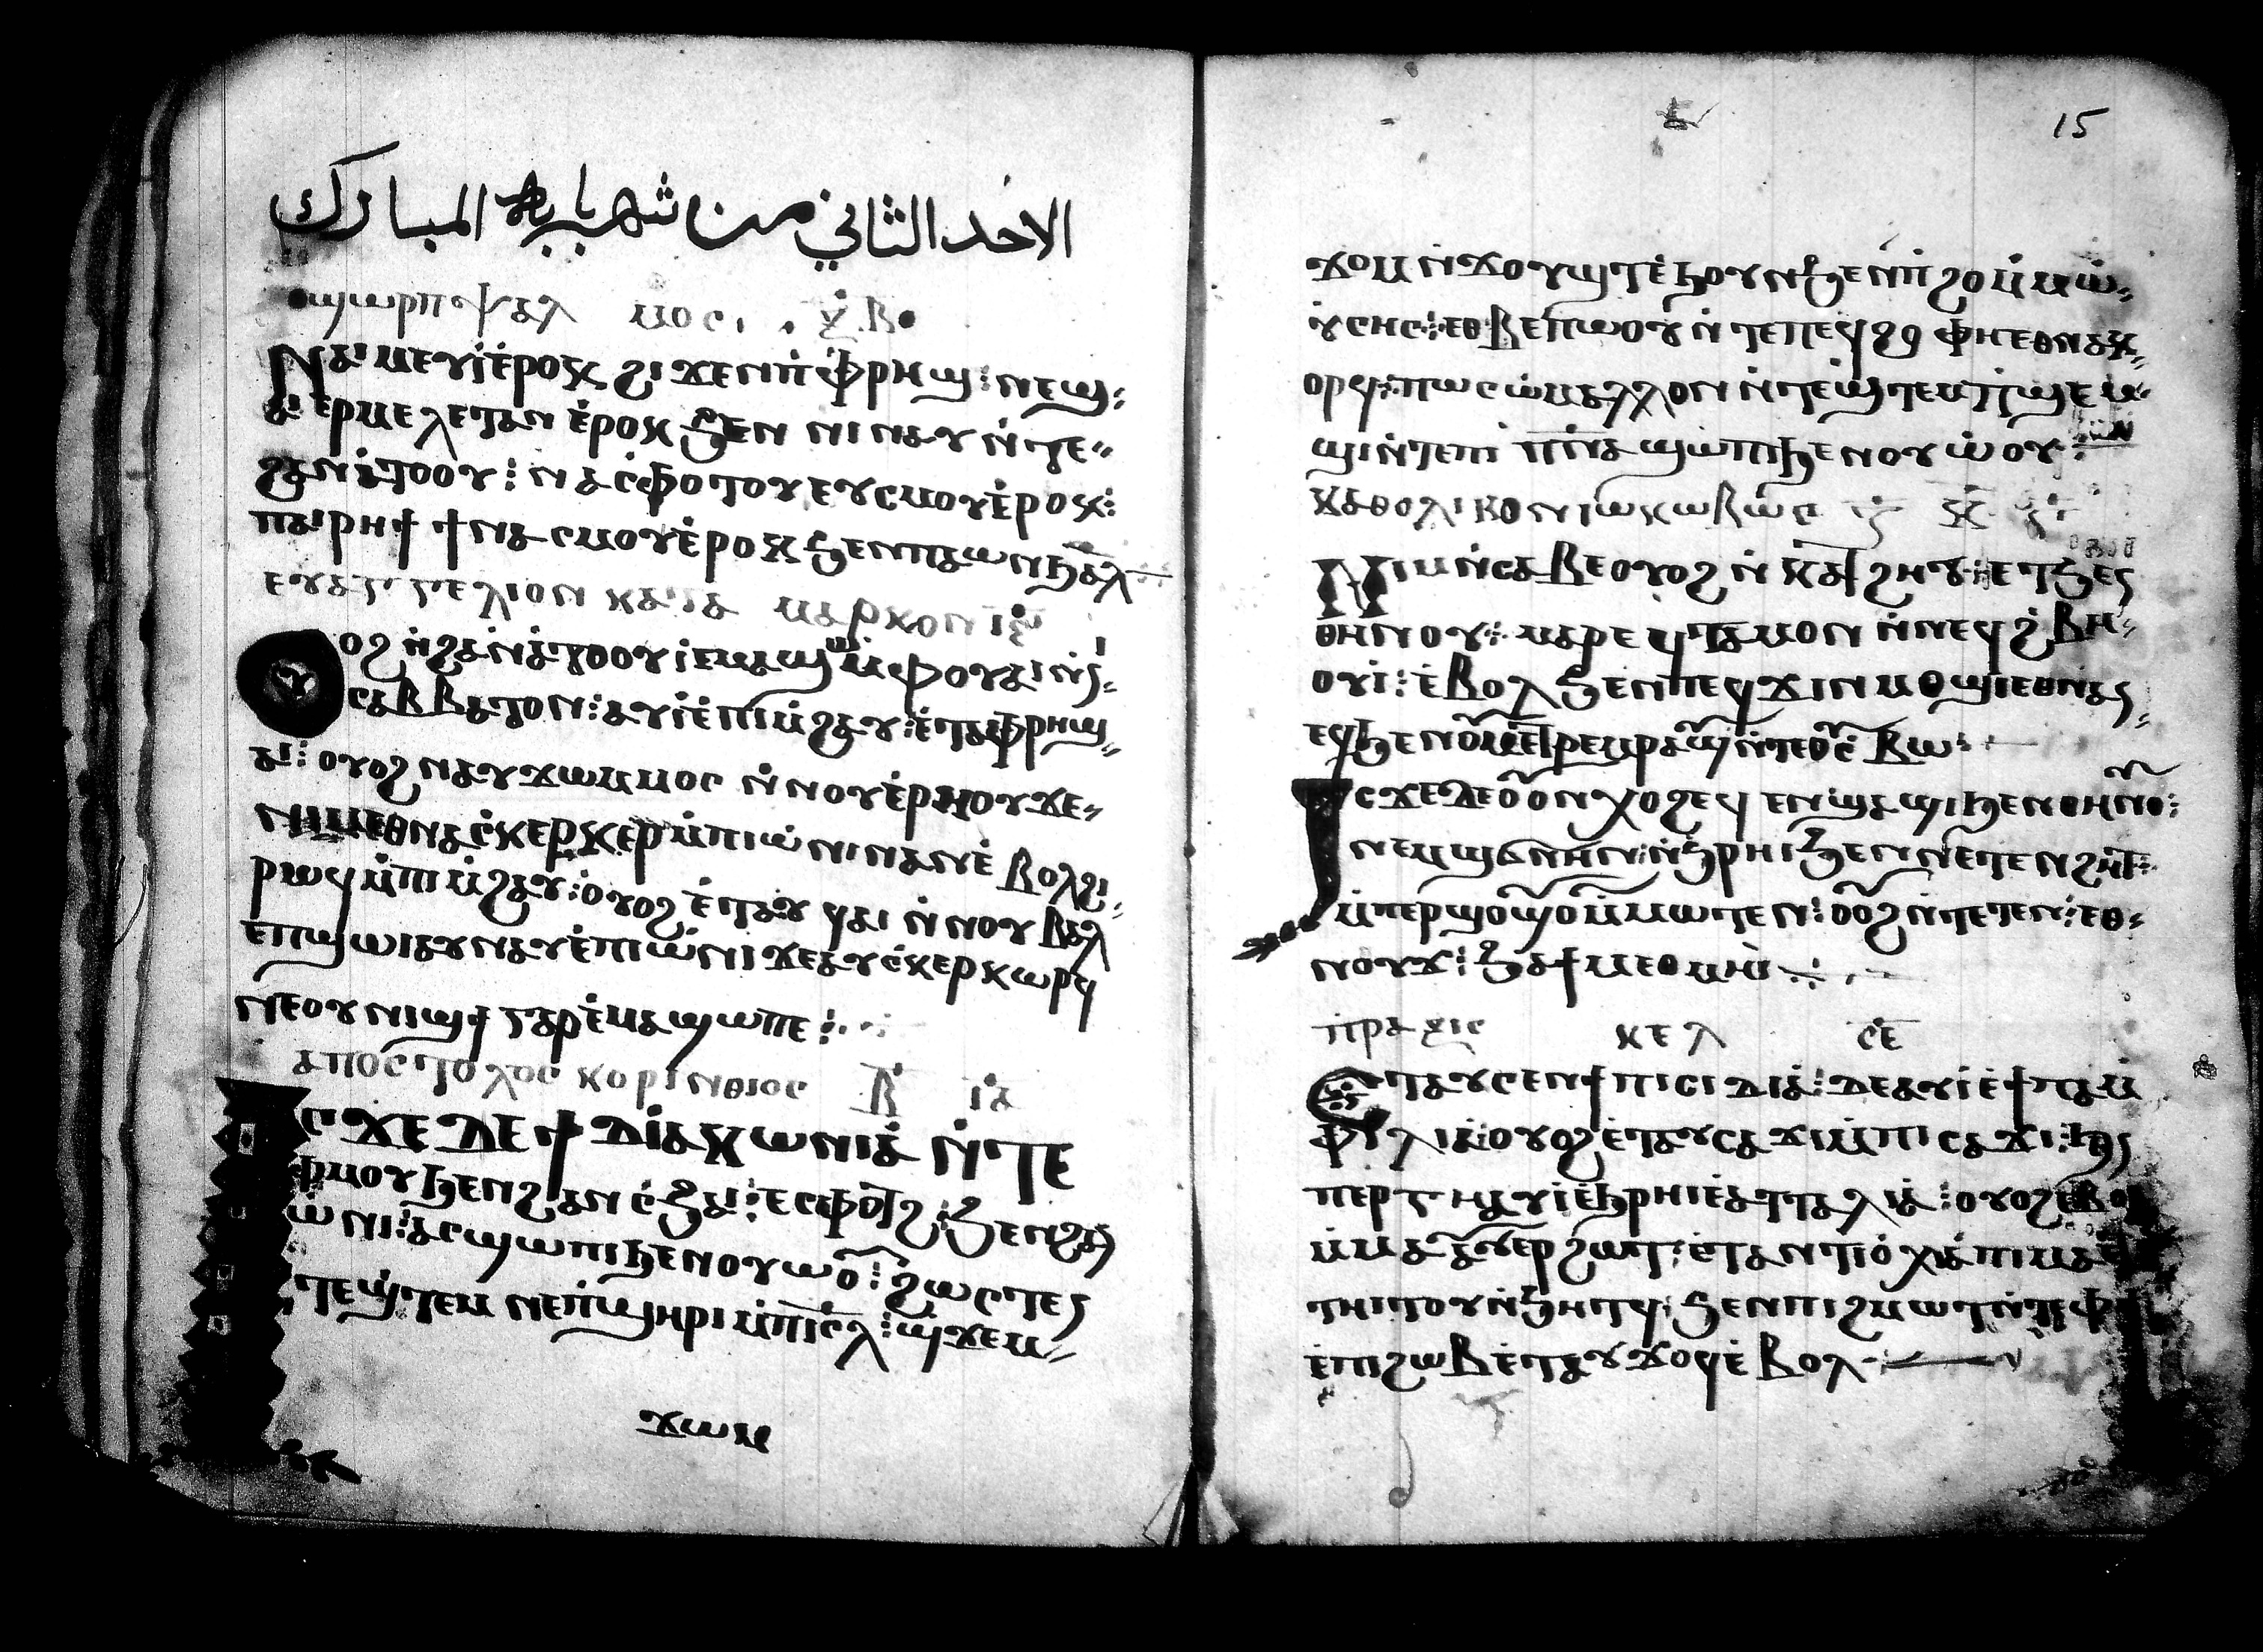 الاحد الثاني من شهر بابه المبارك
ϣⲱⲣⲡ ⲯⲁⲗⲙⲟⲥ ⲝ̅ⲃ̅
Ⲛⲁⲓⲙⲉⲩⲓ ⲉ̀ⲣⲟⲕ ϩⲓϫⲉⲛ ⲡ̀ⲫⲣⲏϣ: ⲛⲉϣ
ⲁⲓⲉⲣⲙⲉⲗⲉⲧⲁⲛ ⲉ̀ⲣⲟⲕ ϧⲉⲛ ⲛⲓⲛⲁⲩ ⲛ̀ⲧⲉ
ϩⲁⲛⲁ̀ⲧⲟⲟⲩⲓ: ⲛⲁⲥ̀ⲫⲟⲧⲟⲩ ⲉⲩⲥⲙⲟⲩ ⲉ̀ⲣⲟⲕ:
ⲡⲁⲓⲣⲏϯ ϯⲛⲁⲥⲙⲟⲩ ⲉ̀ⲣⲟⲕ ϧⲉⲛ ⲡⲁⲱⲛϧ ⲁⲗ
ⲉⲩⲁⲅⲅⲉⲗⲓⲟⲛ ⲕⲁⲧⲁ ⲙⲁⲣⲕⲟⲛ ⲓ̅ⲋ̅
Ⲟⲩⲟϩ ⲛ̀ϩⲁⲛⲁ̀ⲧⲟⲟⲩⲓ ⲉⲙⲁϣⲱ ⲙ̀ⲫⲟⲩⲁⲓ ⲛ̀
ⲥⲁⲃⲃⲁⲧⲟⲛ: ⲁⲩⲓ̀ ⲉ̀ⲡⲓⲙ̀ϩⲁⲩ: ⲉ̀ⲧⲁⲫⲣⲏϣ
ⲁⲓ: ⲟⲩⲟϩ ⲛⲁⲩϫⲱⲙⲙⲟⲥ ⲛ̀ⲛⲟⲩⲉ̀ⲣⲏⲟⲩ ϫⲉ
ⲛⲓⲙⲉⲑⲛⲁⲥ̀ⲕⲉⲣⲕⲉⲣ ⲙ̀ⲡⲓⲱ̀ⲛⲓ ⲛⲁⲛ ⲉ̀ⲃⲟⲗϩⲓ
ⲣⲱϥ ⲙ̀ⲡⲓⲙ̀ϩⲁⲩ: ⲟⲩⲟϩ ⲉ̀ⲧⲁⲩϥⲁⲓ ⲛ̀ⲛⲟⲩⲃⲁⲗ
ⲉⲡϣⲱⲓ ⲁⲩⲛⲁⲩ ⲉ̀ⲡⲓⲱ̀ⲛⲓ ϫⲉ ⲁⲩⲥ̀ⲕⲉⲣⲕⲱⲣϥ
ⲛⲉⲟⲩⲛⲓϣϯ ⲅⲁⲣ ⲉ̀ⲙⲁϣⲱⲡⲉ:
ⲁⲡⲟⲥⲧⲟⲗⲟⲥ ⲕⲟⲣⲓⲛⲑⲓⲟⲥ ⲃ̅ ⲓ̅ⲁ̅
Ⲓⲥϫⲉ ⲇⲉ ϯⲇⲓⲁⲕⲱⲛⲓⲁ ⲛ̀ⲧⲉ
ⲫ̀ⲙⲟⲩ ϧⲉⲛ ϩⲁⲛⲥ̀ϧⲁⲓ: ⲉⲥⲫⲟⲧϩ: ϧⲉⲛ ϩⲁⲛ
ⲱ̀ⲛⲓ: ⲁⲥϣⲱⲡⲓ ϧⲉⲛ ⲟⲩⲱⲟⲩ: ϩⲱⲥⲧⲉ
ⲛ̀ⲧⲉϣⲧⲉⲙ ⲛⲉⲛϣⲏⲣⲓ ⲙ̀ⲡⲓⲥ̅ⲗ̅: ϣ̀ϫⲉⲙ
ϫⲱⲙ
15
ϫⲟⲙ ⲛ̀ϫⲟⲩϣⲧ ⲉ̀ϧⲟⲩⲛ ϧⲉⲛ ⲡ̀ϩⲟ ⲙ̀ⲙⲱ̀
ⲩⲥⲏⲥ: ⲉⲑⲃⲉ ⲡⲱⲟⲩ ⲛ̀ⲧⲉ ⲡⲉϥϩⲟ ⲫⲏⲉⲑⲛⲁⲕ
ⲟⲣϥ: ⲡⲱⲥ ⲱ̀ⲙⲁⲗⲗⲟⲛ ⲛ̀ⲧⲉϣⲧⲉⲙ ϯϣⲉⲙ
ϣⲓ ⲛ̀ⲧⲉ ⲡⲓⲡ̅ⲛ̅ⲁ̅ ϣⲱⲡⲓ ϧⲉⲛ ⲟⲩⲱ̀ⲟⲩ:
ⲕⲁⲑⲟⲗⲓⲕⲟⲛ ⲓⲱⲕⲱⲃⲱⲥ
Ⲛⲓⲙ ⲛ̀ⲥⲁⲃⲉ ⲟⲩⲟϩ ⲛ̀ⲕⲁϯϩⲏⲩ: ⲉⲧϧⲉⲛ
ⲑⲏⲛⲟⲩ: ⲙⲁⲣⲉϥⲧⲁⲙⲟⲛ ⲛ̀ⲛⲉϥϩ̀ⲃⲏ
ⲟⲩⲓ̀: ⲉ̀ⲃⲟⲗ ϧⲉⲛ ⲡⲉϥϫⲓⲛⲙⲟϣⲓ ⲉⲑⲛⲁⲛ
ⲉϥ ϧⲉⲛ ⲟⲩⲙⲉⲧⲣⲉⲙⲣⲁⲩϣ ⲛ̀ⲧⲉ ⲟⲩⲥ̀ⲃⲱ:
Ⲓⲥϫⲉ ⲇⲉ ⲟⲩⲟⲛ ⲭⲟϩ ⲉϥⲉⲛϣⲁϣⲓ ϧⲉⲛ ⲑⲏⲛⲟⲩ:
ⲛⲉⲙ ϣϭⲛⲏⲛ: ⲛ̀ϧⲣⲏⲓ ϧⲉⲛ ⲛⲉⲧⲉⲛϩⲏⲧ:
ⲙ̀ⲡⲉⲣϣⲟⲩϣⲟⲩ ⲙ̀ⲙⲱⲧⲉⲛ: ⲟⲩⲟϩ ⲛ̀ⲧⲉⲧⲉⲛ: ⲉⲑ
ⲛⲟⲩϫ: ϧⲁ ϯⲙⲉⲑⲙⲏⲓ
ⲡⲣⲁⲝⲓⲥ ⲕⲉⲗ ⲥ̅ⲉ̅
Ⲉⲧⲁⲩⲥⲉⲛ ϯⲡⲓⲥⲓⲇⲓⲁ: ⲇⲉ ⲁⲩⲓ̀ ⲉ̀ϯⲡⲁⲙ
ⲫⲓⲗⲓⲁ: ⲟⲩⲟϩ ⲉ̀ⲧⲁⲩⲥⲁϫⲓ ⲙ̀ⲡⲓⲥⲁϫⲓ: ϧⲉⲛ
ⲡⲉⲣⲅⲏ ⲁⲩⲓ̀ ⲉ̀ϧⲣⲏⲓ ⲉ̀ⲁⲧⲧⲁⲗⲓⲁ: ⲟⲩⲟϩ ⲉ̀ⲃⲟⲗ
ⲙ̀ⲙⲁⲩ ⲁⲩⲉⲣϩⲱⲧ: ⲉ̀ⲧⲁⲛⲧⲓⲟ̀ⲭⲓⲁ ⲡⲓⲙⲁ ⲉ
ⲧⲏⲓⲧⲟⲩ ⲛ̀ϧⲏⲧϥ: ϧⲉⲛ ⲡⲓϩⲙⲟⲧ ⲛ̀ⲧⲉ ⲫϯ
ⲉ̀ⲡⲓϩⲱⲃ ⲉ̀ⲧⲁⲩϫⲟⲕϥ ⲉ̀ⲃⲟⲗ